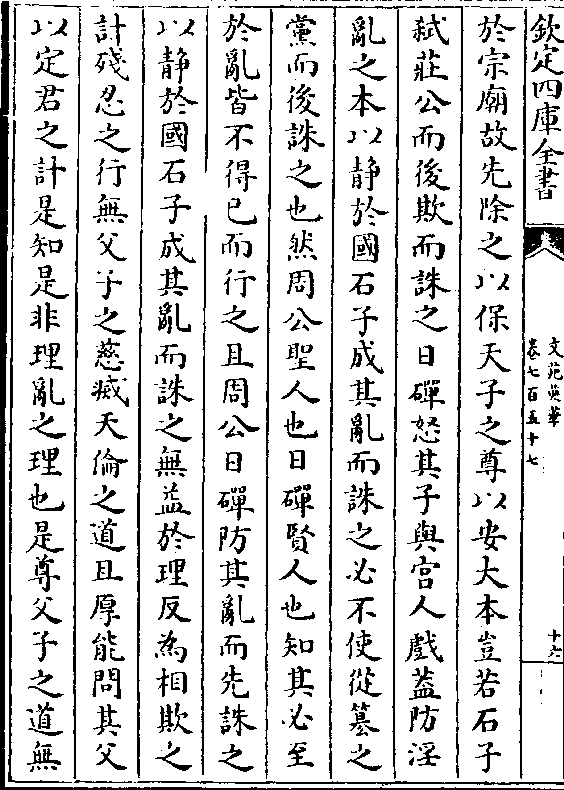 欽定四庫全書
文苑英華
卷七百五十七
十六
於宗廟故先除之以保天子之尊以安大本豈若石子
弑莊公而後欺而誅之日磾怒其子與宫人戲葢防淫
亂之本以静於國石子成其亂而誅之必不使從篡之
黨而後誅之也然周公聖人也日磾賢人也知其必至
於亂皆不得已而行之且周公日磾防其亂而先誅之
以静於國石子成其亂而誅之無益於理反為相欺之
計殘忍之行無父子之慈臧天倫之道且厚能問其父
以定君之計是知是非理亂之理也是尊父子之道無